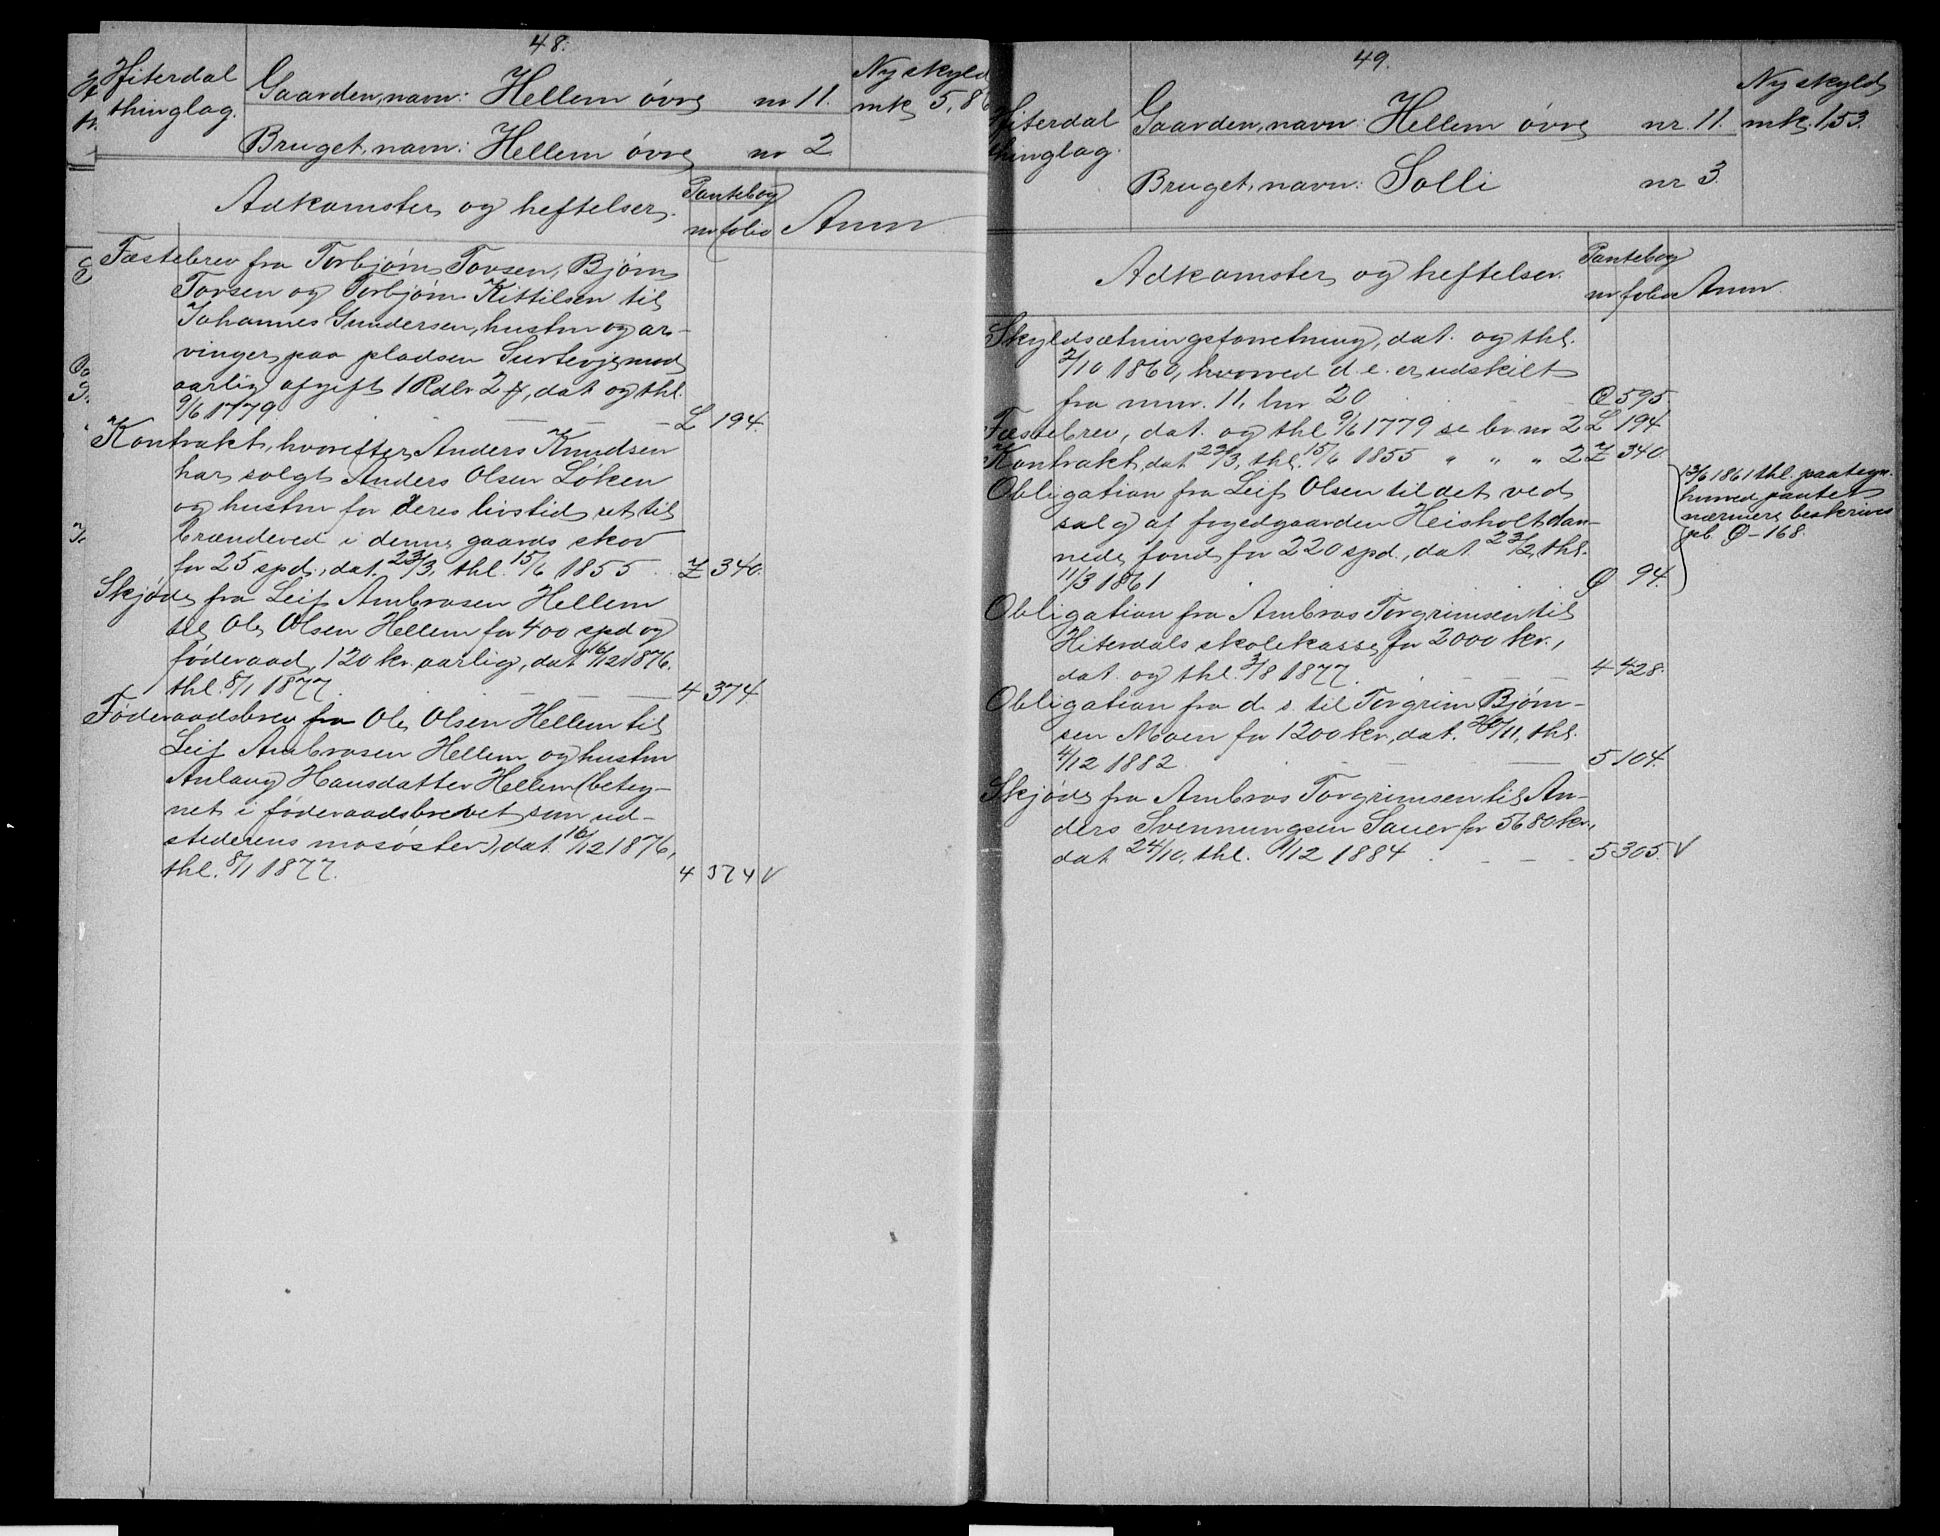 48.
Hiterdal thinglag.
Gaardens navn: Hellem øvre nr 11.
Ny skyld mk 5,8
Brugets navn: Hellem øvre nr 2
Adkomster og heftelser.
Pantebog
nr folio
Anm
Fæstebrev fra Torbjørn Tovsen, Bjørn
Tovsen og Torbjørn Kittilsen til
Johannes Gundersen, hustru og ar-
vinger paa pladsen Surtevje mod
aarlig afgift 1 Rdlr 2 , dat og thl.
9/6 1779. L 194.
Kontrakt, hvorefter Anders Knudsen
har solgt Anders Olsen Løken
og hustru for deres livstid ret til
brændeved i denne gaards skov
for 25 spd., dat. 23/3, thl. 15/6 1855 Z 340.
Skjøde fra Leif Ambrosen Hellem
til Ole Olsen Hellem for 400 spd og
føderaad, 120 kr. aarlig, dat 16/12 1876.
thl. 8/1 1877. 4 374.
Føderaadsbrev fra Ole Olsen Hellem til
Leif Ambrosen Hellem og hustru
Anlaug Hansdatter Hellem (beteg-
net i føderaadsbrevet som ud-
stederens mosøster), dat 16/12 1876,
thl. 8/1 1877. 4 374 V
49.
Hiterdal thinglag.
Gaardens navn: Hellem øvre nr. 11.
Ny skyld mk. 1,53.
Brugets navn: Solli nr 3.
Adkomster og heftelser.
Pantebog
nr folio
Anm.
Skyldsætningsforretning, dat. og thl.
2/10 1860, hvorved d. e. er udskilt
fra mnr. 11, lnr 20 595.
Fæstebrev, dat. og thl 9/6 1779 se br nr 2 L 194
Kontrakt, dat 23/3, thl. 15/6 1855 " " " 2 Z 340.
Obligation fra Leif Olsen til det ved
salg af fogedgaarden Heisholt dan-
nede fond for 220 spd., dat 23/2, thl.
11/3 1861 94.
13/6 1861 thl. paategn.
hvorved pantet
nærmere beskrives
pb. – 168.
Obligation fra Ambros Torgrimsen til
Hiterdals skolekasse for 2000 kr.,
dat. og thl. 3/8 1877. 4 428.
Obligation fra d. s. til Torgrim Bjørn-
sen Moen for 1200 kr., dat. 20/11, thl.
4/12 1882. 5 104.
Skjøde fra Ambros Torgrimsen til An-
ders Svennungsen Sauer for 5680 kr.,
dat 24/10, thl. 1/12 1884. 5 305. V